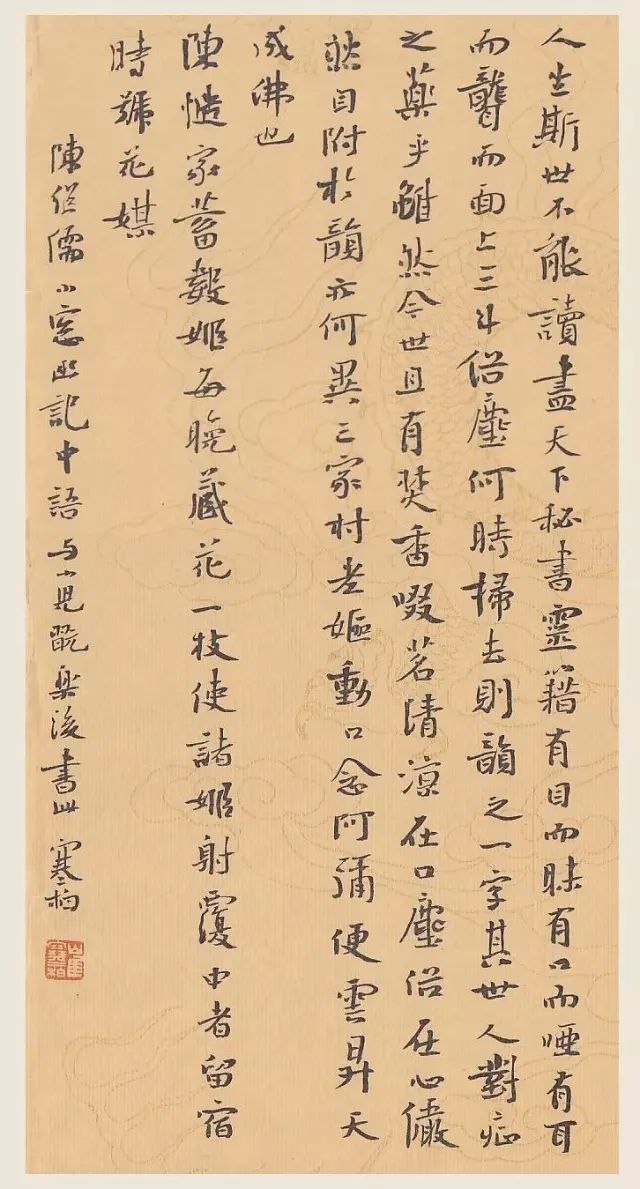 人生斯世不能讀盡天下秘書靈籍有目而昧有口而啞有耳
而聾而面上三斗俗塵何時掃去則韻之一字其世人對症
之藥乎雖然今世且有焚香啜茗清涼在口塵俗在心儼
然自附於韻亦何異三家村老嫗動口念阿彌便雲昇天
成佛也
陳慥家蓄數姬每晚藏花一枝使諸姬射覆中者留宿
時號花媒
陳继儒小窓幽記中語与小児樂後書此寒柏